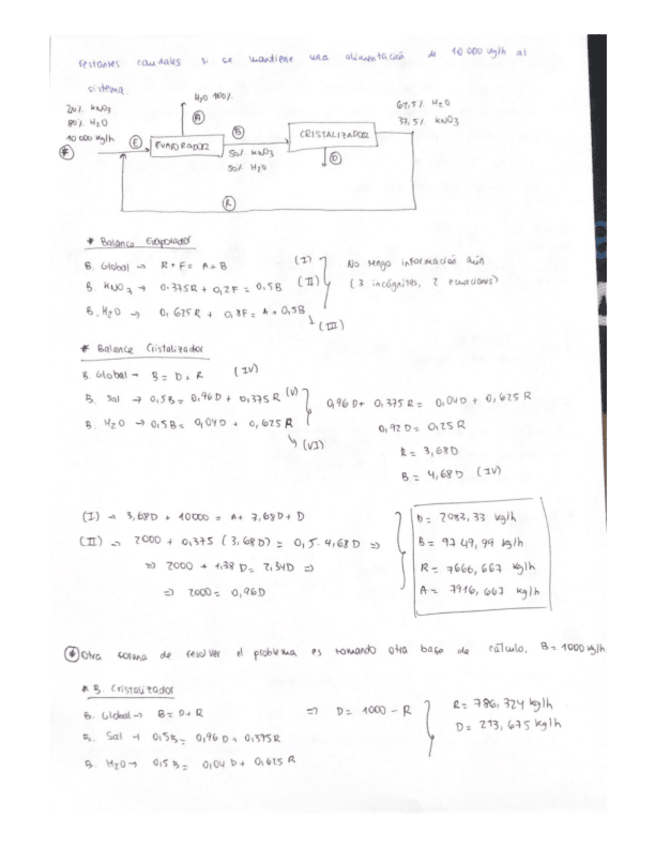 restantes caudales si se mantiene una alimentación de 10 000 kg/h al
sistema.
H₂O 100%
20% KNO₃
80% H₂O
10 000 kg/h
F
E
EVAPORADOR
A
B
50% KNO₃
50% H₂O
CRISTALIZADOR
D
62,5% H₂O
37,5% KNO₃
R
* Balance Evaporador
B. Global → R+F = A+B (I)
B. KNO₃ → 0.375R + 0,2F = 0,5B (II)
B. H₂O → 0,625R + 0,8F = A + 0,5B (III)
No tengo información aún
(3 incógnitas, 2 ecuaciones)
* Balance Cristalizador
B. Global → B = D + R (IV)
B. Sal → 0,5B = 0,96D + 0,375R (V)
B. H₂O → 0,5B = 0,04D + 0,625R (VI)
0,96D + 0,375R = 0,04D + 0,625R
0,92D = 0,25R
R = 3,68D
B = 4,68D (IV)
(I) → 3,68D + 10000 = A + 3,68D + D
(II) → 2000 + 0,375 (3,68D) = 0,5 · 4,68D ⇒
⇒ 2000 + 1,38D = 2,34D ⇒
⇒ 2000 = 0,96D
D = 2083,33 kg/h
B = 9749,99 kg/h
R = 7666,667 kg/h
A = 7916,667 kg/h
* Otra forma de resolver el problema es tomando otra base de cálculo, B = 1000 kg/h
* B. Cristalizador
B. Global → B = D + R ⇒ D = 1000 - R
B. Sal → 0,5B = 0,96D + 0,375R
B. H₂O → 0,5B = 0,04D + 0,625R
R = 786,324 kg/h
D = 213,675 kg/h